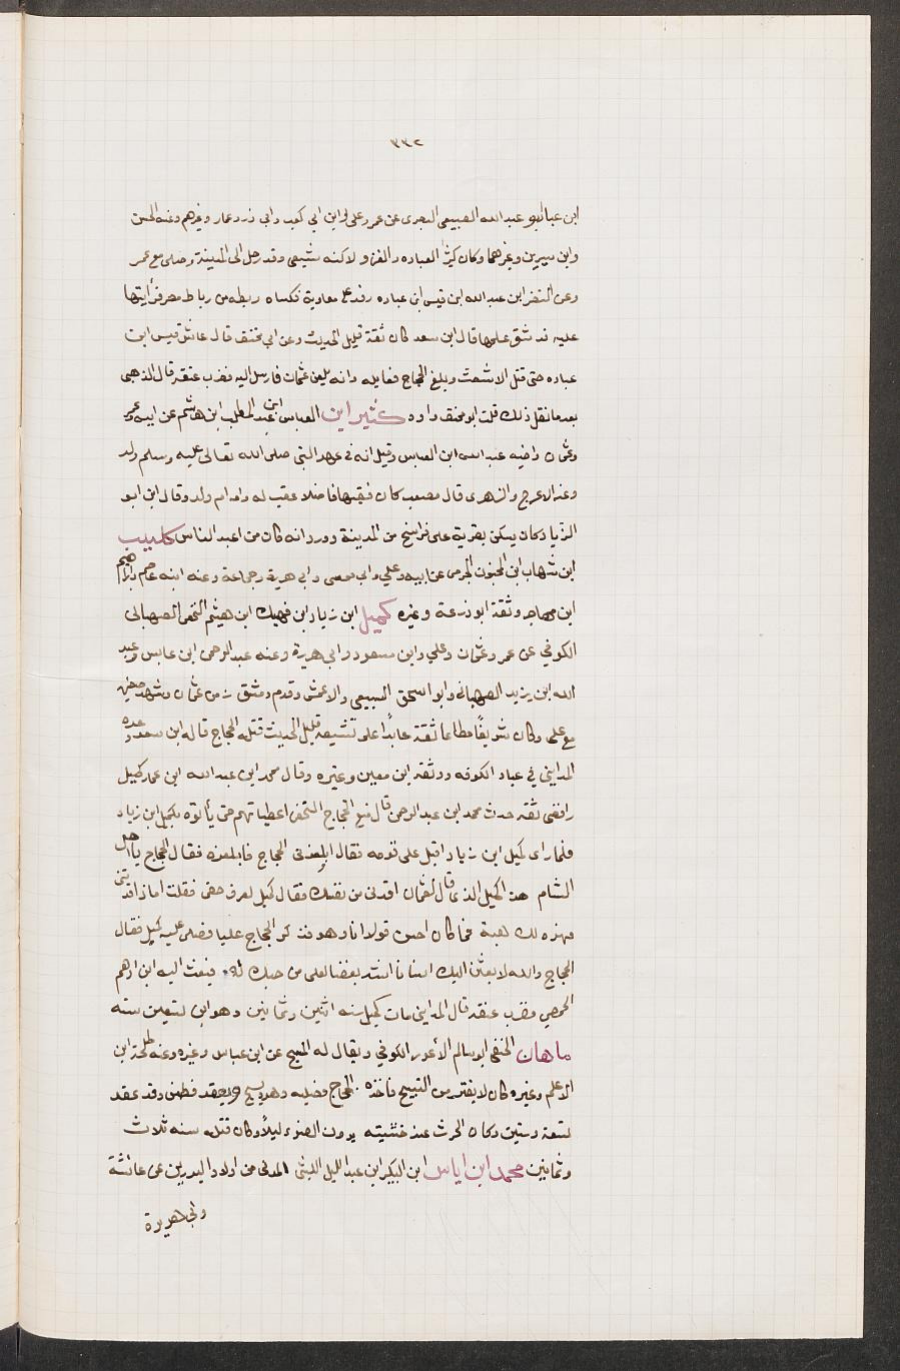 ٣٣٢
ابن عباد ابو عبد الله الضبيعى البصرى عن عمر وعلى وابن ابى كعب وابى ذر وعمار وغيرهم وعنه الحسن
وابن سيرين وغيرهما وكان كثير العباده والغزو لاكنه شيعى وقد رحل الى المدينة وصلى مع عمر
وعن النضر ابن عبد الله ابن قيس ابن عباده وفد على معاوية فكساه ريطه من رياط مصر فرأيتها
عليه قد شق علمها قال ابن سعد كان ثقة قليل الحديث وعن ابى مخنف قال عاش قيس ابن
عباده حتى قتل الاشعث وبلغ الحجاج فعايله وانه يلعن عثمان فارسل اليه فضرب عنقه قال الذهبى
بعد ما نقل ذلك قلت ابو مخنف واه كثير ابن العباس ابن عبد المطلب ابن هاشم عن ابيه وعمر
وعثمان واخيه عبد الله ابن العباس وقيل انه فى عهد النبى صلى الله تعالى عليه وسلم ولد
وعنه الاعرج والزهرى قال مصعب كان فقيها فاضلا عقب له وامه ام ولد وقال ابن ابو
الزياد كان يسكن بقرية على فراسخ من المدينة وورد انه كان من اعبد الناس كليب
ابن شهاب ابن المجنون الجرمى عن ابيه وعلي وابى موسى وابى هريرة وجماعة وعنه ابنه عاصم وابراهيم
ابن مهاجر وثقة ابو زرعة وغيره كميل ابن زياد ابن نهيك ابن هيثم النخعى الصهبانى
الكوفي عن عمر وعثمان وعلي وابن مسعود وابى هريرة وعنه عبد الرحمن ابن عابس وعبد
الله ابن يزيد الصهبانى وابو اسحق السبيعى والاعمش وقدم دمشق زمن عثمان وشهد صفين
مع على وكان شريفا مطاعا ثقة عابدا على تشيعه قليل الحديث قتله الحجاج قاله ابن سعد وعده
المداينى في عباد الكوفه ووثقه ابن معين وغيره وقال محمد ابن عبد الله ابن عمار كميل
رافضى ثقه حدث محمد ابن عبد الرحمن قال منع الحجاج النخع اعطياتهم حتى يأتوه بكميل ابن زياد
فلما راى كميل ابن زياد اقبل على قومه فقال ابلغونى الحجاج فابلغوه فقال الحجاج يا اهل
الشام هذا كميل الذى قال لعثمان اقدنى من نفسك فقال كميل لعرف حقى فقلت اما اذ اقدتنى
فهزه لك هبة فما كان احسن قولا انا وهو فذكر الحجاج عليا فصلى عليه كميل فقال
الحجاج والله لابعثن اليك انسانا اشد بغضا لعلى من حبك له فبعث اليه ابن ادهم
الحمصي فضرب عنقه قال المداينى مات كميل سنه اثنين وثمانين وهو ابن تسعين سنه
ماهان الحنفى ابو سالم الاعور الكوفي ويقال له المسبح عن ابن عباس وغيره وعنه طلحة ابن
الاعلم وغيره كان لا يفتر من التسبيح فاخذه الحجاج فصلبه وهو يسبح ويعقد فطعن وقد عقد
تسعة وستين وكان الحرث عند خشبته يرون الضوء ليلا وكان قتله سنه ثلاث
وثمانين محمد ابن اياس ابن البكير ابن عبد الليل الليثى المدنى من اولاد البدريين عن عائشة
وابى هريرة